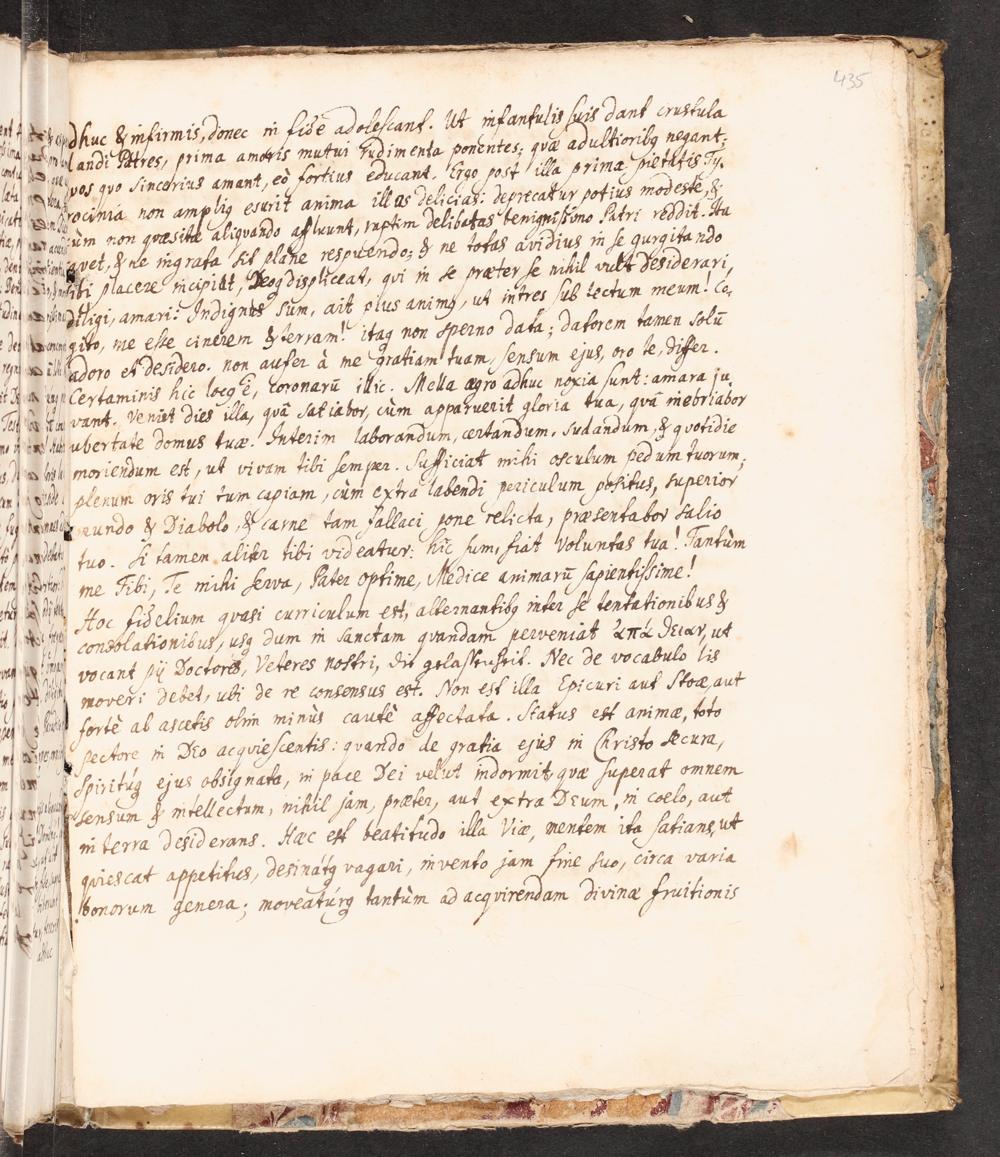 435
dhuc & infirmis, donec in fide adolescant. Ut infantulis suis dant crustula
landi Patres, prima amoris mutui rudimenta ponentes; quæ adultioribꝫ negant;
vos quo sincerius amant, eò fortius educant. Ergo post illa prima pietatis Ty-
rocinia non ampliꝫ esurit anima illas delicias: deprecatur potius modeste, &
ùm non quæsitæ aliquando affluunt, raptim delibatas benignissimo Patri reddit. Ita
avet, & ne ingrata sit plane respuendo; & ne totas avidius in se gurgitando
ibi placere incipiat, Deoꝗ displiceat, qui in se præter se nihil vult desiderari,
diligi, amari: Indignus sum, ait pius animꝫ, ut intres sub tectum meum! Co-
gito, me esse cinerem & terram! itaꝗ non sperno data; datorem tamen solū
adoro et desidero. non aufer à me gratiam tuam, sensum ejus, oro te, differ.
Certaminis hic locꝫ ē, coronarū illic. Mella ægro adhuc noxia sunt: amara ju-
vant. Veniet dies illa, quâ satiabor, cùm apparuerit gloria tua, quâ inebriabor
ubertate domus tuæ. Interim laborandum, certandum, sudandum, & quotidie
moriendum est, ut vivam tibi semper. Sufficiat mihi osculum pedum tuorum;
plenum oris tui tum capiam, cùm extra labendi periculum positus, superior
mundo & Diabolo, & carne tam fallaci pone relicta, præsentabor Filio
tuo. Si tamen aliter tibi videatur: hîc sum, fiat voluntas tua! Tantùm
me Tibi, Te mihi serva, Pater optime, Medice animarū sapientissime!
Hoc fidelium quasi curriculum est, alternantibꝫ inter se tentationibus &
consolationibus, usꝗ dum in sanctam quandam perveniat ἀπάθειαν, ut
vocant pij Doctores, Veteres nostri, die gelassenheit. Nec de vocabulo lis
moveri debet, ubi de re consensus est. Non est illa Epicuri aut Stoæ, aut
fortè ab ascetis olim minùs cautè affectata. Status est animæ, toto
pectore in Deo acquiescentis: quando de gratia ejus in Christo secura,
Spirituꝗ ejus obsignata, in pace Dei velut indormit, quæ superat omnem
sensum & intellectum, nihil jam, præter, aut extra Deum, in coelo, aut
in terra desiderans. Hæc est beatitudo illa Viæ, mentem ita satians, ut
quiescat appetitus, desinatꝗ vagari, invento jam fine suo, circa varia
bonorum genera; moveaturꝗ tantùm ad acquirendam divinæ fruitionis